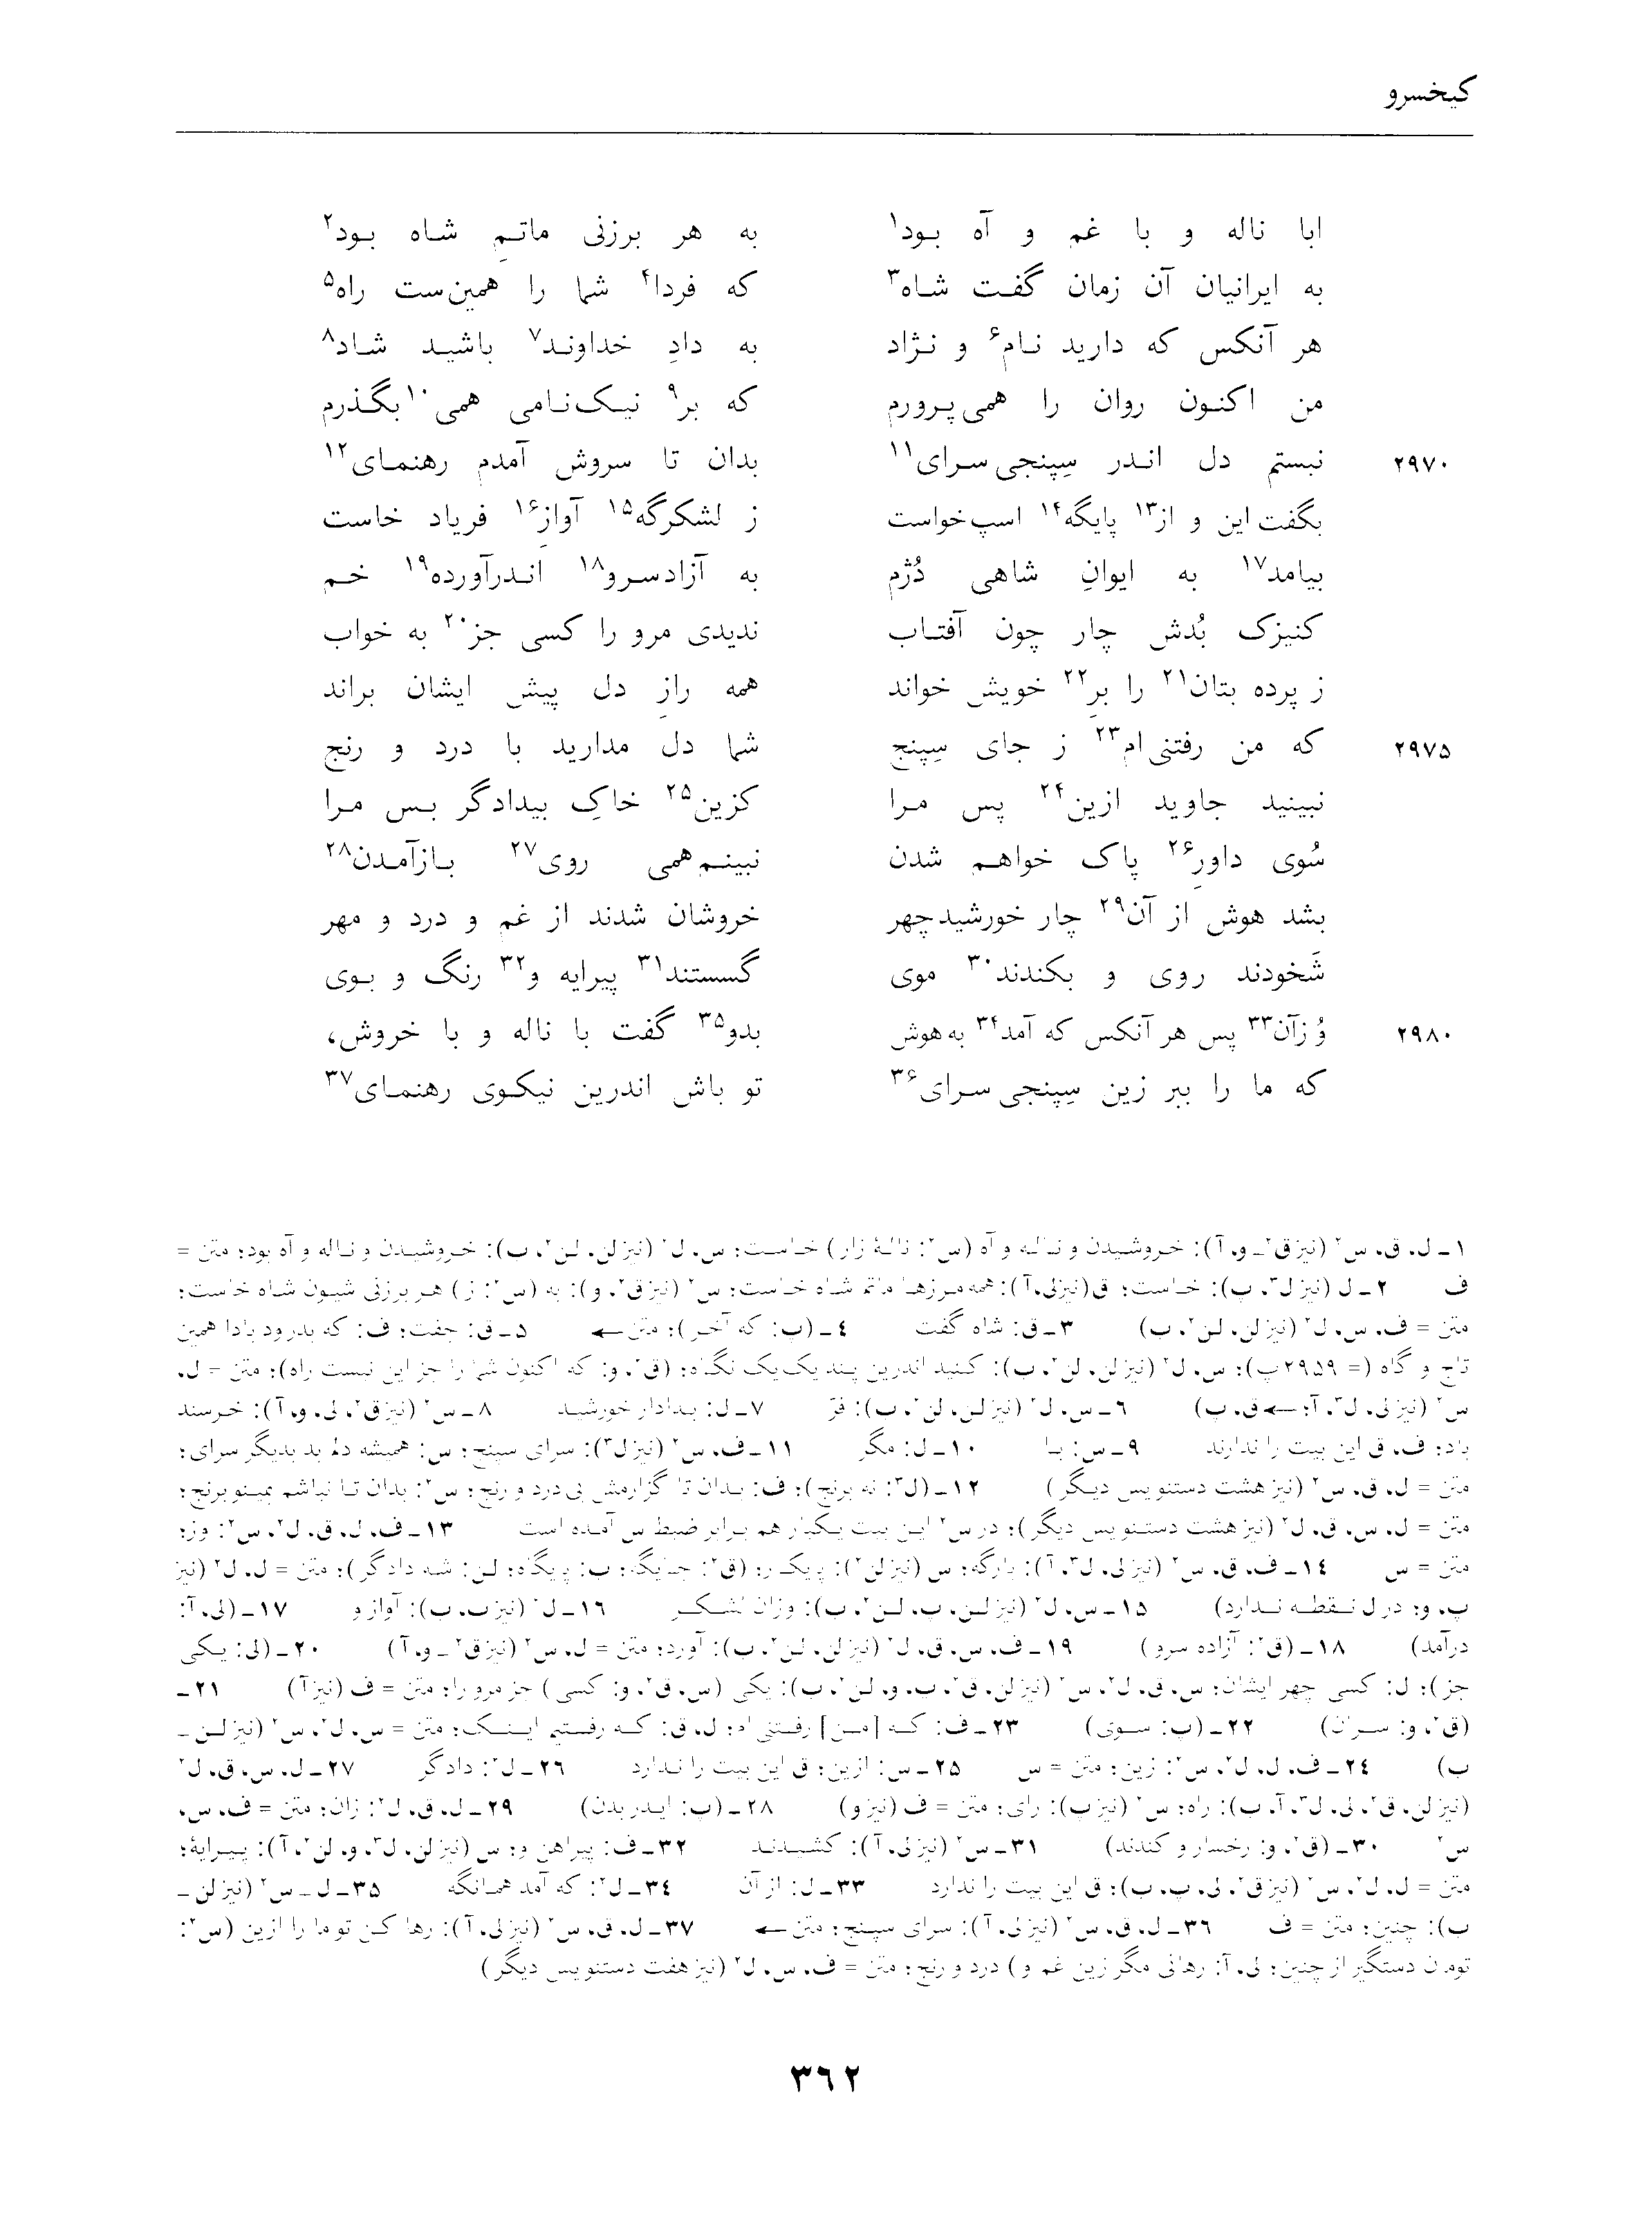 کیخسرو
ابا ناله و با غم و آه بود¹ به هر برزنی ماتمِ شاه بود²
به ایرانیان آن زمان گفت شاه³ که فردا⁴ شما را همین‌ست راه⁵
هر آنکس که دارید نام⁶ و نژاد به دادِ خداوند⁷ باشید شاد⁸
من اکنون روان را همی‌پرورم که بر⁹ نیک‌نامی همی¹⁰ بگذرم
۲۹۷۰ نبستم دل اندر سِپنجی‌سرای¹¹ بدان تا سروش آمدم رهنمای¹²
بگفت این و از¹³ پایگه¹⁴ اسپ خواست ز لشکرگه¹⁵ آوازِ¹⁶ فریاد خاست
بیامد¹⁷ به ایوانِ شاهی دُژم به آزادسرو¹⁸ اندرآورده¹⁹ خم
کنیزک بُدش چار چون آفتاب ندیدی مرو را کسی جز²⁰ به خواب
ز پرده بتان²¹ را برِ²² خویش خواند همه رازِ دل پیش ایشان براند
۲۹۷۵ که من رفتنی‌ام²³ ز جای سِپنج شما دل مدارید با درد و رنج
نبینید جاوید ازین²⁴ پس مرا کزین²⁵ خاکِ بیدادگر بس مرا
سُوی داورِ²⁶ پاک خواهم شدن نبینم همی روی²⁷ بازآمدن²⁸
بشد هوش از آن²⁹ چار خورشیدچهر خروشان شدند از غم و درد و مهر
شَخودند روی و بکندند³⁰ موی گسستند³¹ پیرایه و³² رنگ و بوی
۲۹۸۰ وُ زآن³³ پس هر آنکس که آمد³⁴ به‌هوش بدو³⁵ گفت با ناله و با خروش،
که ما را ببر زین سِپنجی‌سرای³⁶ تو باش اندرین نیکوی رهنمای³⁷
۱ـ ل، ق، س² (نیز ق² ـ و، آ): خروشیدن و ناله و آه (س²: نالهٔ زار) خاست؛ س، ل² (نیز لن، لن²، ب): خروشیدن و ناله و آه بود؛ متن =
ف ۲ـ ل (نیز ل³، پ): خاست؛ ق (نیز لی، آ): همه مرزها ماتم شاه خاست؛ س² (نیز ق²، و): به (س²: ز) هر برزنی شیون شاه خاست؛
متن = ف، س، ل² (نیز لن، لن²، ب) ۳ـ ق: شاه گفت ۴ـ (پ: که آخر)؛ متن ← ۵ـ ق: جفت؛ ف: که بدرود بادا همین
تاج و گاه (= ۲۹۵۹پ)؛ س، ل² (نیز لن، لن²، ب): کنید اندرین پند یک‌یک نگاه؛ (ق²، و: که اکنون شما را جز این نیست راه)؛ متن = ل،
س² (نیز لی، ل³، آ؛ ← ق، پ) ۶ـ س، ل² (نیز لن، لن²، ب): فرّ ۷ـ ل: بدادار خورشید ۸ـ س² (نیز ق²، لی، و، آ): خرسند
باد؛ ف، ق این بیت را ندارند ۹ـ س: با ۱۰ـ ل: مگر ۱۱ـ ف، س² (نیز ل³): سرای سپنج؛ س: همیشه دلم بد بدیگر سرای؛
متن = ل، ق، س² (نیز هشت دستنویس دیگر) ۱۲ـ (ل³: نه برنج)؛ ف: بدان تا گزارمش بی درد و رنج؛ س²: بدان تا نباشم بمینو برنج؛
متن = ل، س، ق، ل² (نیز هشت دستنویس دیگر)؛ در س² این بیت یکبار هم برابر ضبط س آمده است ۱۳ـ ف، ل، ق، ل²، س²: وز؛
متن = س ۱۴ـ ف، ق، س² (نیز لی، ل³، آ): بارگه؛ س (نیز لن²): پیکار؛ (ق²: جایگه؛ ب: پگاه؛ لن: شه دادگر)؛ متن = ل، ل² (نیز
پ، و؛ در ل نقطه ندارد) ۱۵ـ س، ل² (نیز لن، پ، لن²، ب): وزان لشکر ۱۶ـ ل² (نیز پ، ب): آواز و ۱۷ـ (لی، آ:
درآمد) ۱۸ـ (ق²: آزاده سرو) ۱۹ـ ف، س، ق، ل² (نیز لن، لن²، ب): آورد؛ متن = ل، س² (نیز ق² ـ و، آ) ۲۰ـ (لی: یکی
جز)؛ ل: کسی چهر ایشان؛ س، ق، ل²، س² (نیز لن، ق²، پ، و، لن²، ب): یکی (س، ق²، و: کسی) جز مرو را؛ متن = ف (نیز آ) ۲۱ـ
(ق²، و: سران) ۲۲ـ (پ: سوی) ۲۳ـ ف: که [من] رفتنی‌ام؛ ل، ق: که رفتیم اینک؛ متن = س، ل²، س² (نیز لن ـ
ب) ۲۴ـ ف، ل، ل²، س²: زین؛ متن = س ۲۵ـ س: ازین؛ ق این بیت را ندارد ۲۶ـ ل²: دادگر ۲۷ـ ل، س، ق، ل²
(نیز لن، ق²، لی، ل³، آ، ب): راه؛ س² (نیز پ): رای؛ متن = ف (نیز و) ۲۸ـ (پ: ایدر بدن) ۲۹ـ ل، ق، ل²: زان؛ متن = ف، س،
س² ۳۰ـ (ق²، و: رخسار و کندند) ۳۱ـ س² (نیز لی، آ): کشیدند ۳۲ـ ف: پیراهن و؛ س (نیز لن، ل³، و، لن²، آ): پیرایهٔ؛
متن = ل، ل²، س² (نیز ق²، لی، پ، ب)؛ ق این بیت را ندارد ۳۳ـ ل: از آن ۳۴ـ ل²: که آمد همانگه ۳۵ـ ل ـ س² (نیز لن ـ
ب): چنین؛ متن = ف ۳۶ـ ل، ق، س² (نیز لی، آ): سرای سپنج؛ متن ← ۳۷ـ ل، ق، س² (نیز لی، آ): رها کن تو ما را ازین (س²:
دستگیر از چنین؛ لی، آ: رهانی مگر زین غم و) درد و رنج؛ متن = ف، س، ل² (نیز هفت دستنویس دیگر)
۳۶۲